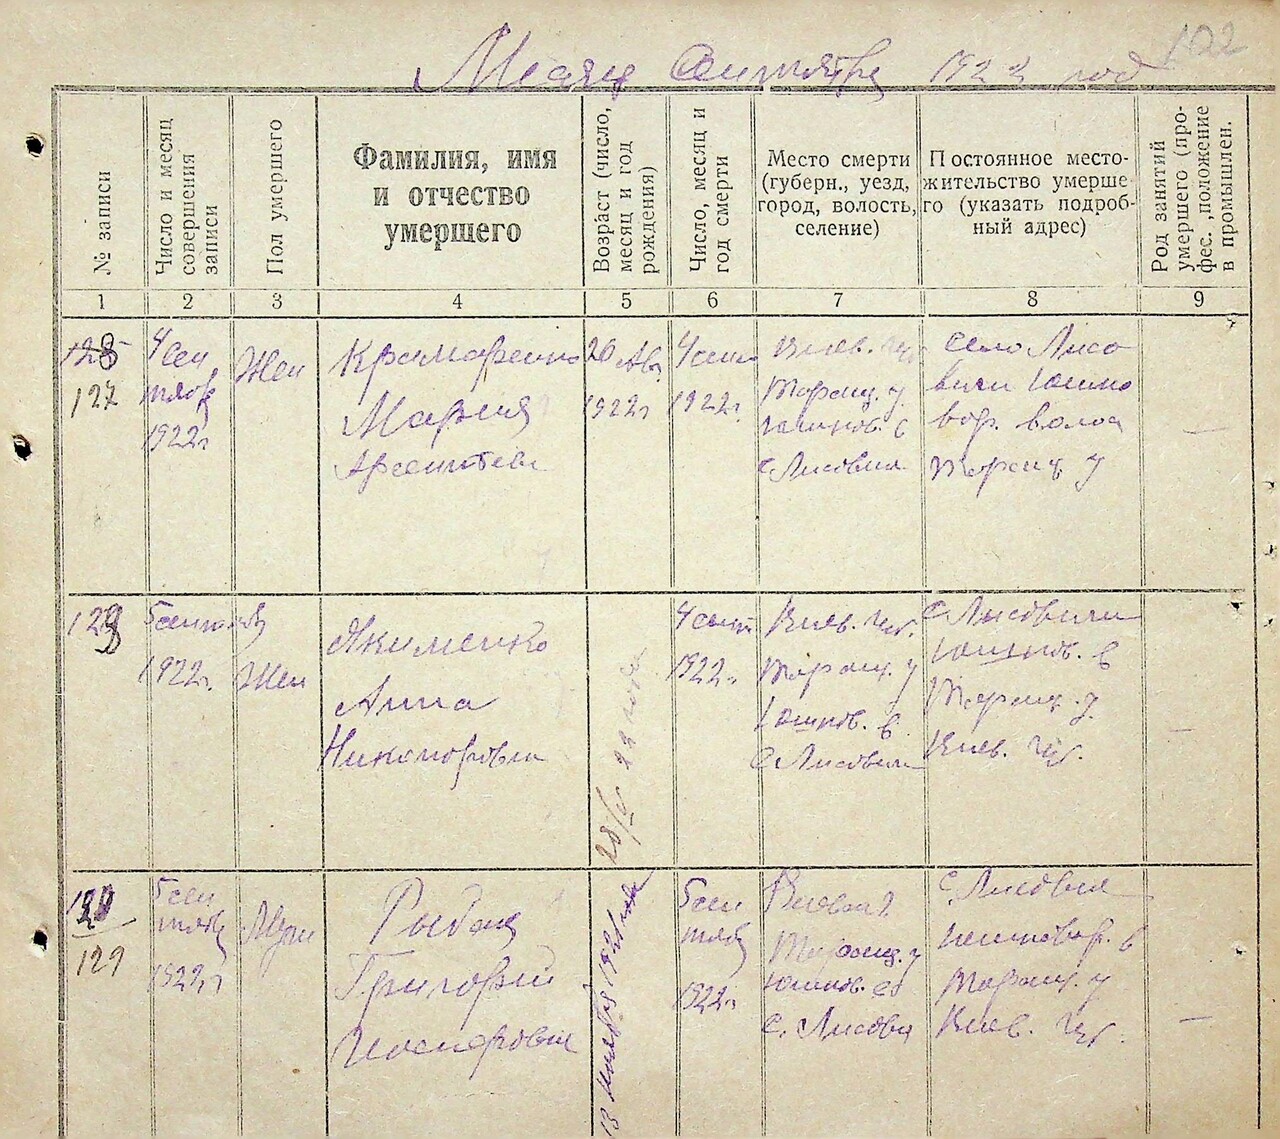 Месяц Сентябрь 1922 год
102
№ записи
Число и месяц
совершения
записи
Пол умершего
Фамилия, имя
и отчество
умершего
Возраст (число,
месяц и год
рождения)
Число, месяц и
год смерти
Место смерти
(губерн., уезд,
город, волость,
селение)
Постоянное место-
жительство умерше-
го (указать подроб-
ный адрес)
Род занятий
умершего (про-
фес., положение
в промышлен.
1 2 3 4 5 6 7 8 9
127
4 сен
тябр
1922 г
Жен
Крамаренко
Мария
Арсентьев
20 Ав.
1922 г
4 сент
1922 г.
Киев. губ
Таращ. у
с Лисовичи
село Лисо
вичи
вор. волос
Таращ у
—
128
5 сентяб
1922 г.
Жен
Якименко
Анна
Никоноровн
22 года
4 сент
1922 г.
Киев. губ.
Таращ. у
с Лисович
с Лисовичи
Таращ. у.
Киев. губ.
—
129
5 сен
тябр
1922 г
Муж
Григорий
Иосифович
18 1921 года
5 сен
тяб
1922 г.
Киевск г.
Таращ. у
с. Лисович
с. Лисович
Таращ. у
Киев. губ.
—